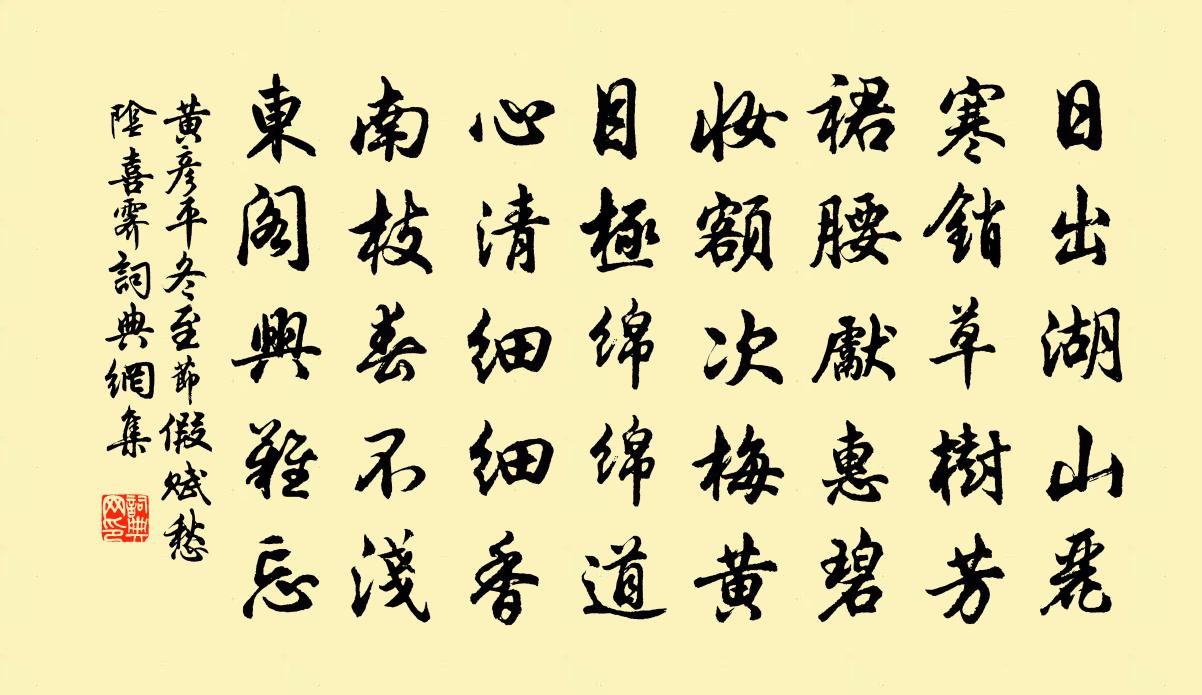 日出湖山麗
寒銷草樹芳
裙腰獻惠碧
妝額次梅黃
目極綿綿道
心清細細香
南枝春不淺
東閣興難忘
黃彦平冬至節假賦愁
陰喜霽詞典網集
詞典网印